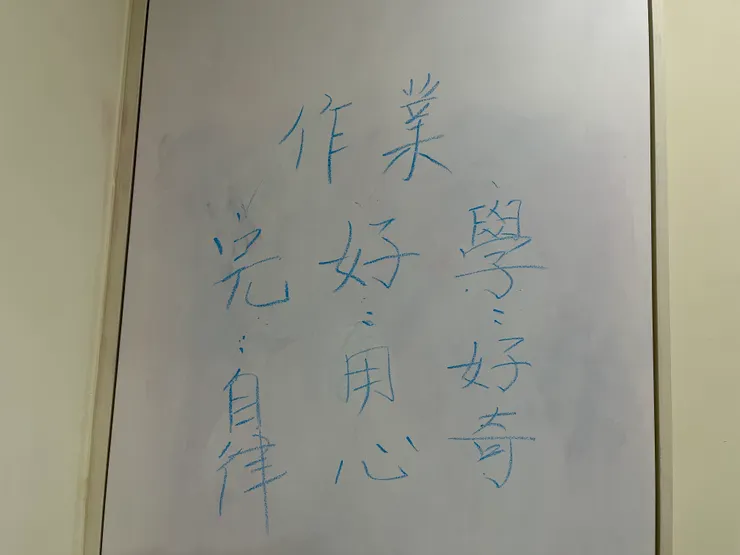 作業
學：好奇
好：用心
完：自律